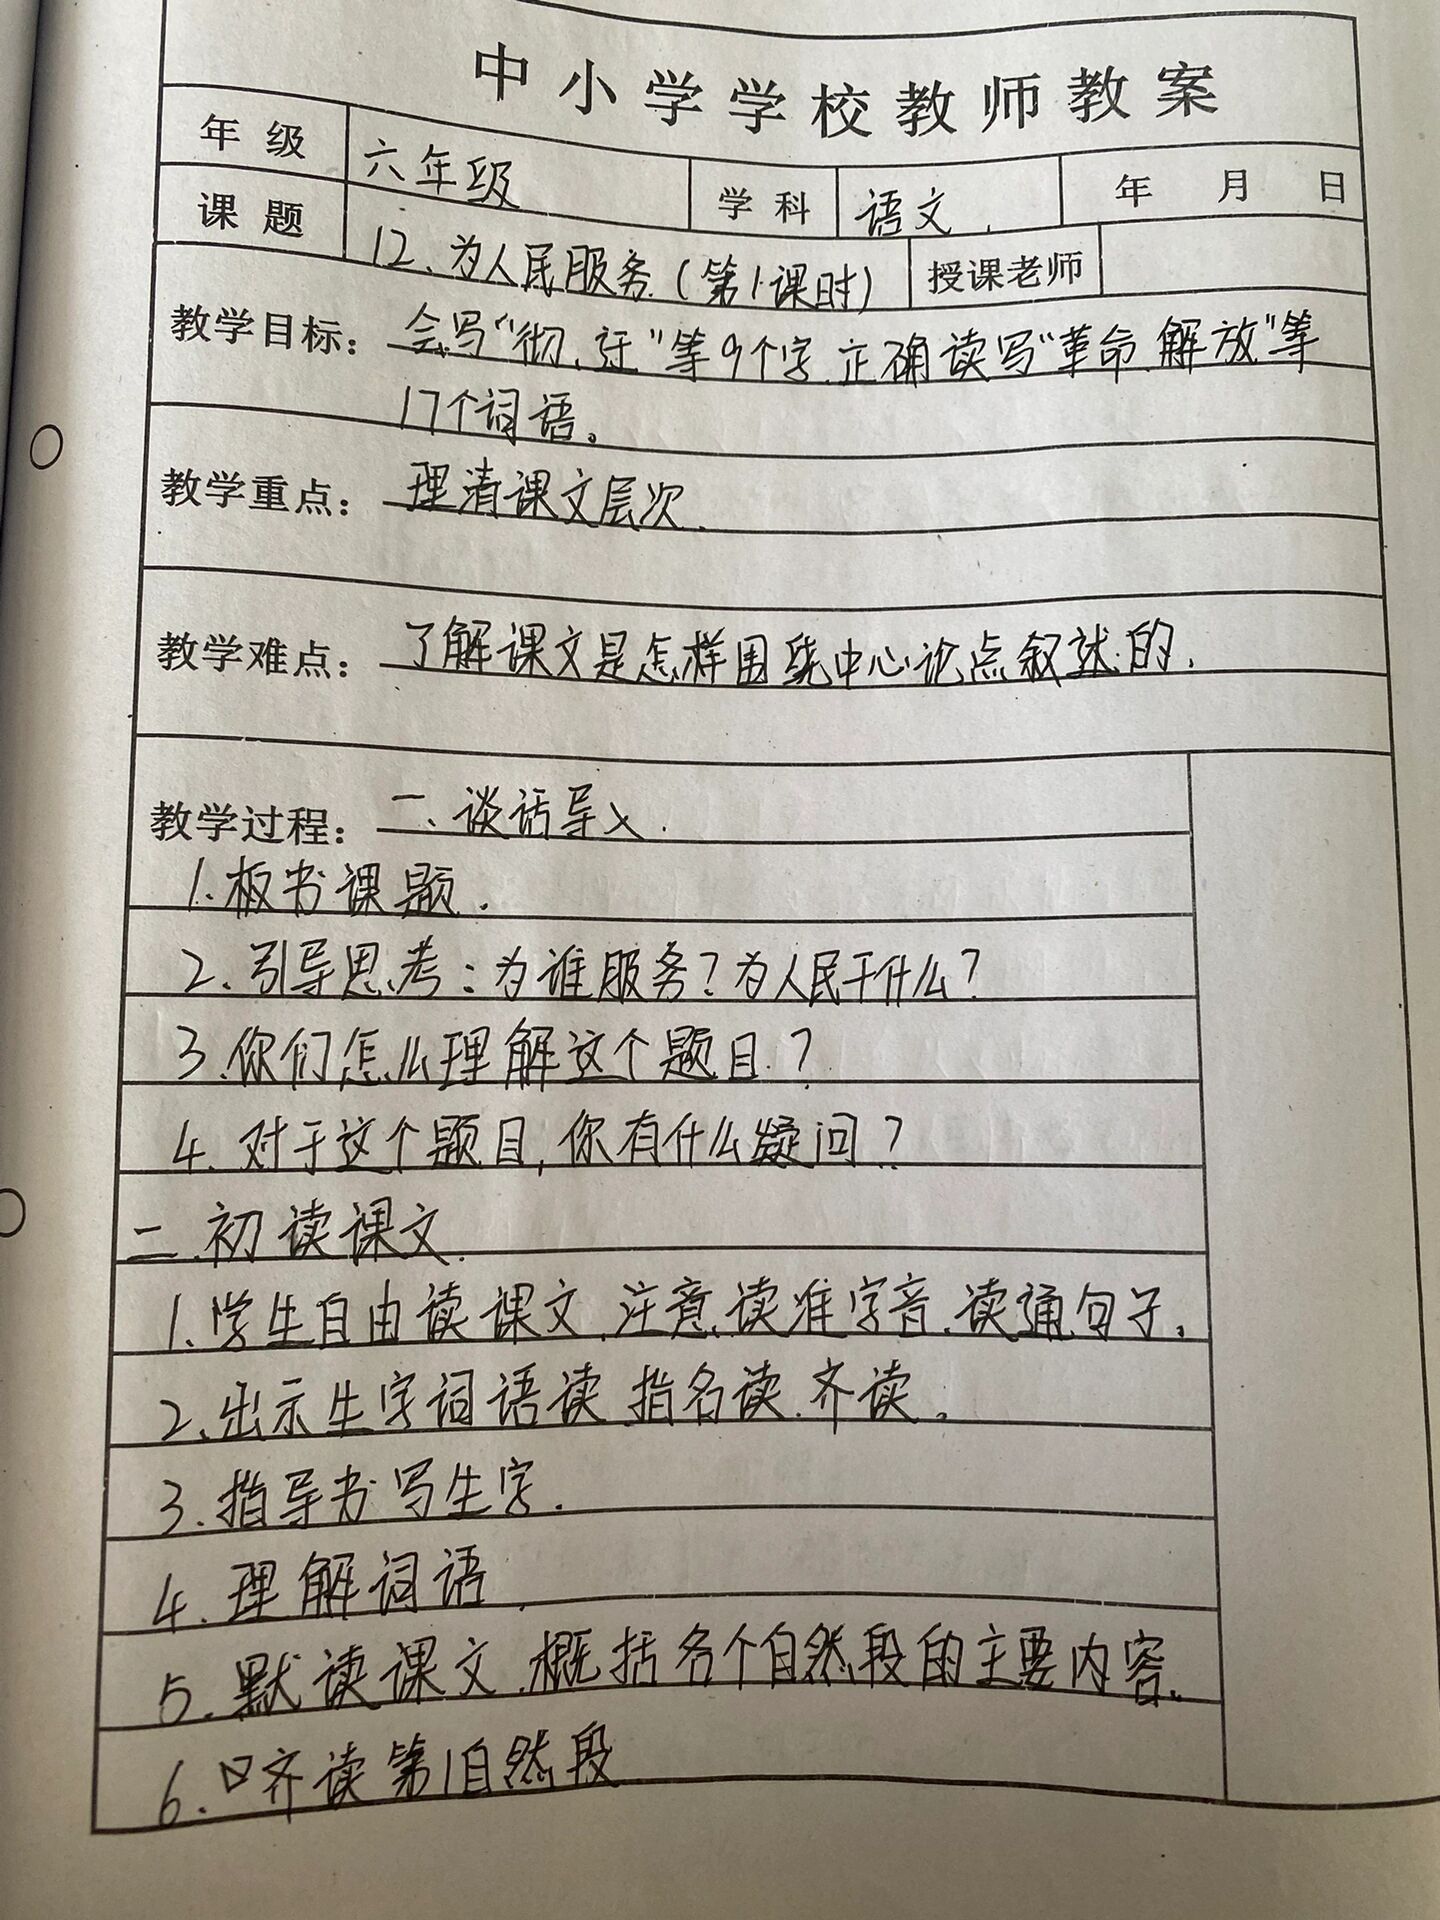 中小学学校教师教案
年级 六年级 学科 语文. 年 月 日
课题 12、为人民服务(第1课时) 授课老师
教学目标: 会写“彻、迁”等9个字.正确读写“革命.解放”等
17个词语。
教学重点: 理清课文层次.
教学难点: 了解课文是怎样围绕中心论点叙述的.
教学过程: 一、谈话导入.
1.板书课题.
2.引导思考:为谁服务?为人民干什么?
3.你们怎么理解这个题目?
4.对于这个题目,你有什么疑问?
二.初读课文.
1.学生自由读课文.注意.读准字音.读通句子。
2、出示生字词语读.指名读.齐读。
3.指导书写生字.
4.理解词语.
5.默读课文.概括各个自然段的主要内容。
6.口齐读第1自然段